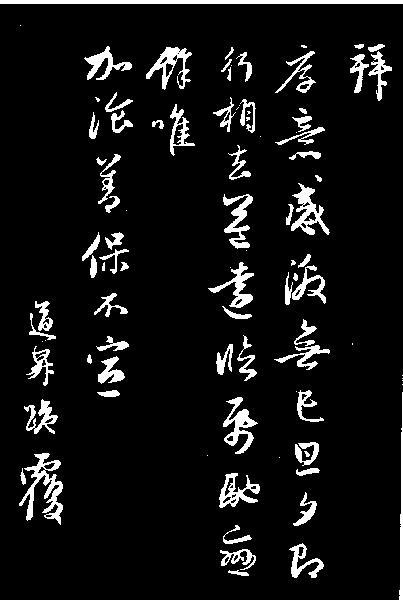 拜
厚意感激無已旦夕即
行相去益遠臨馳
餘唯
加湌善保不宣
道昇覆